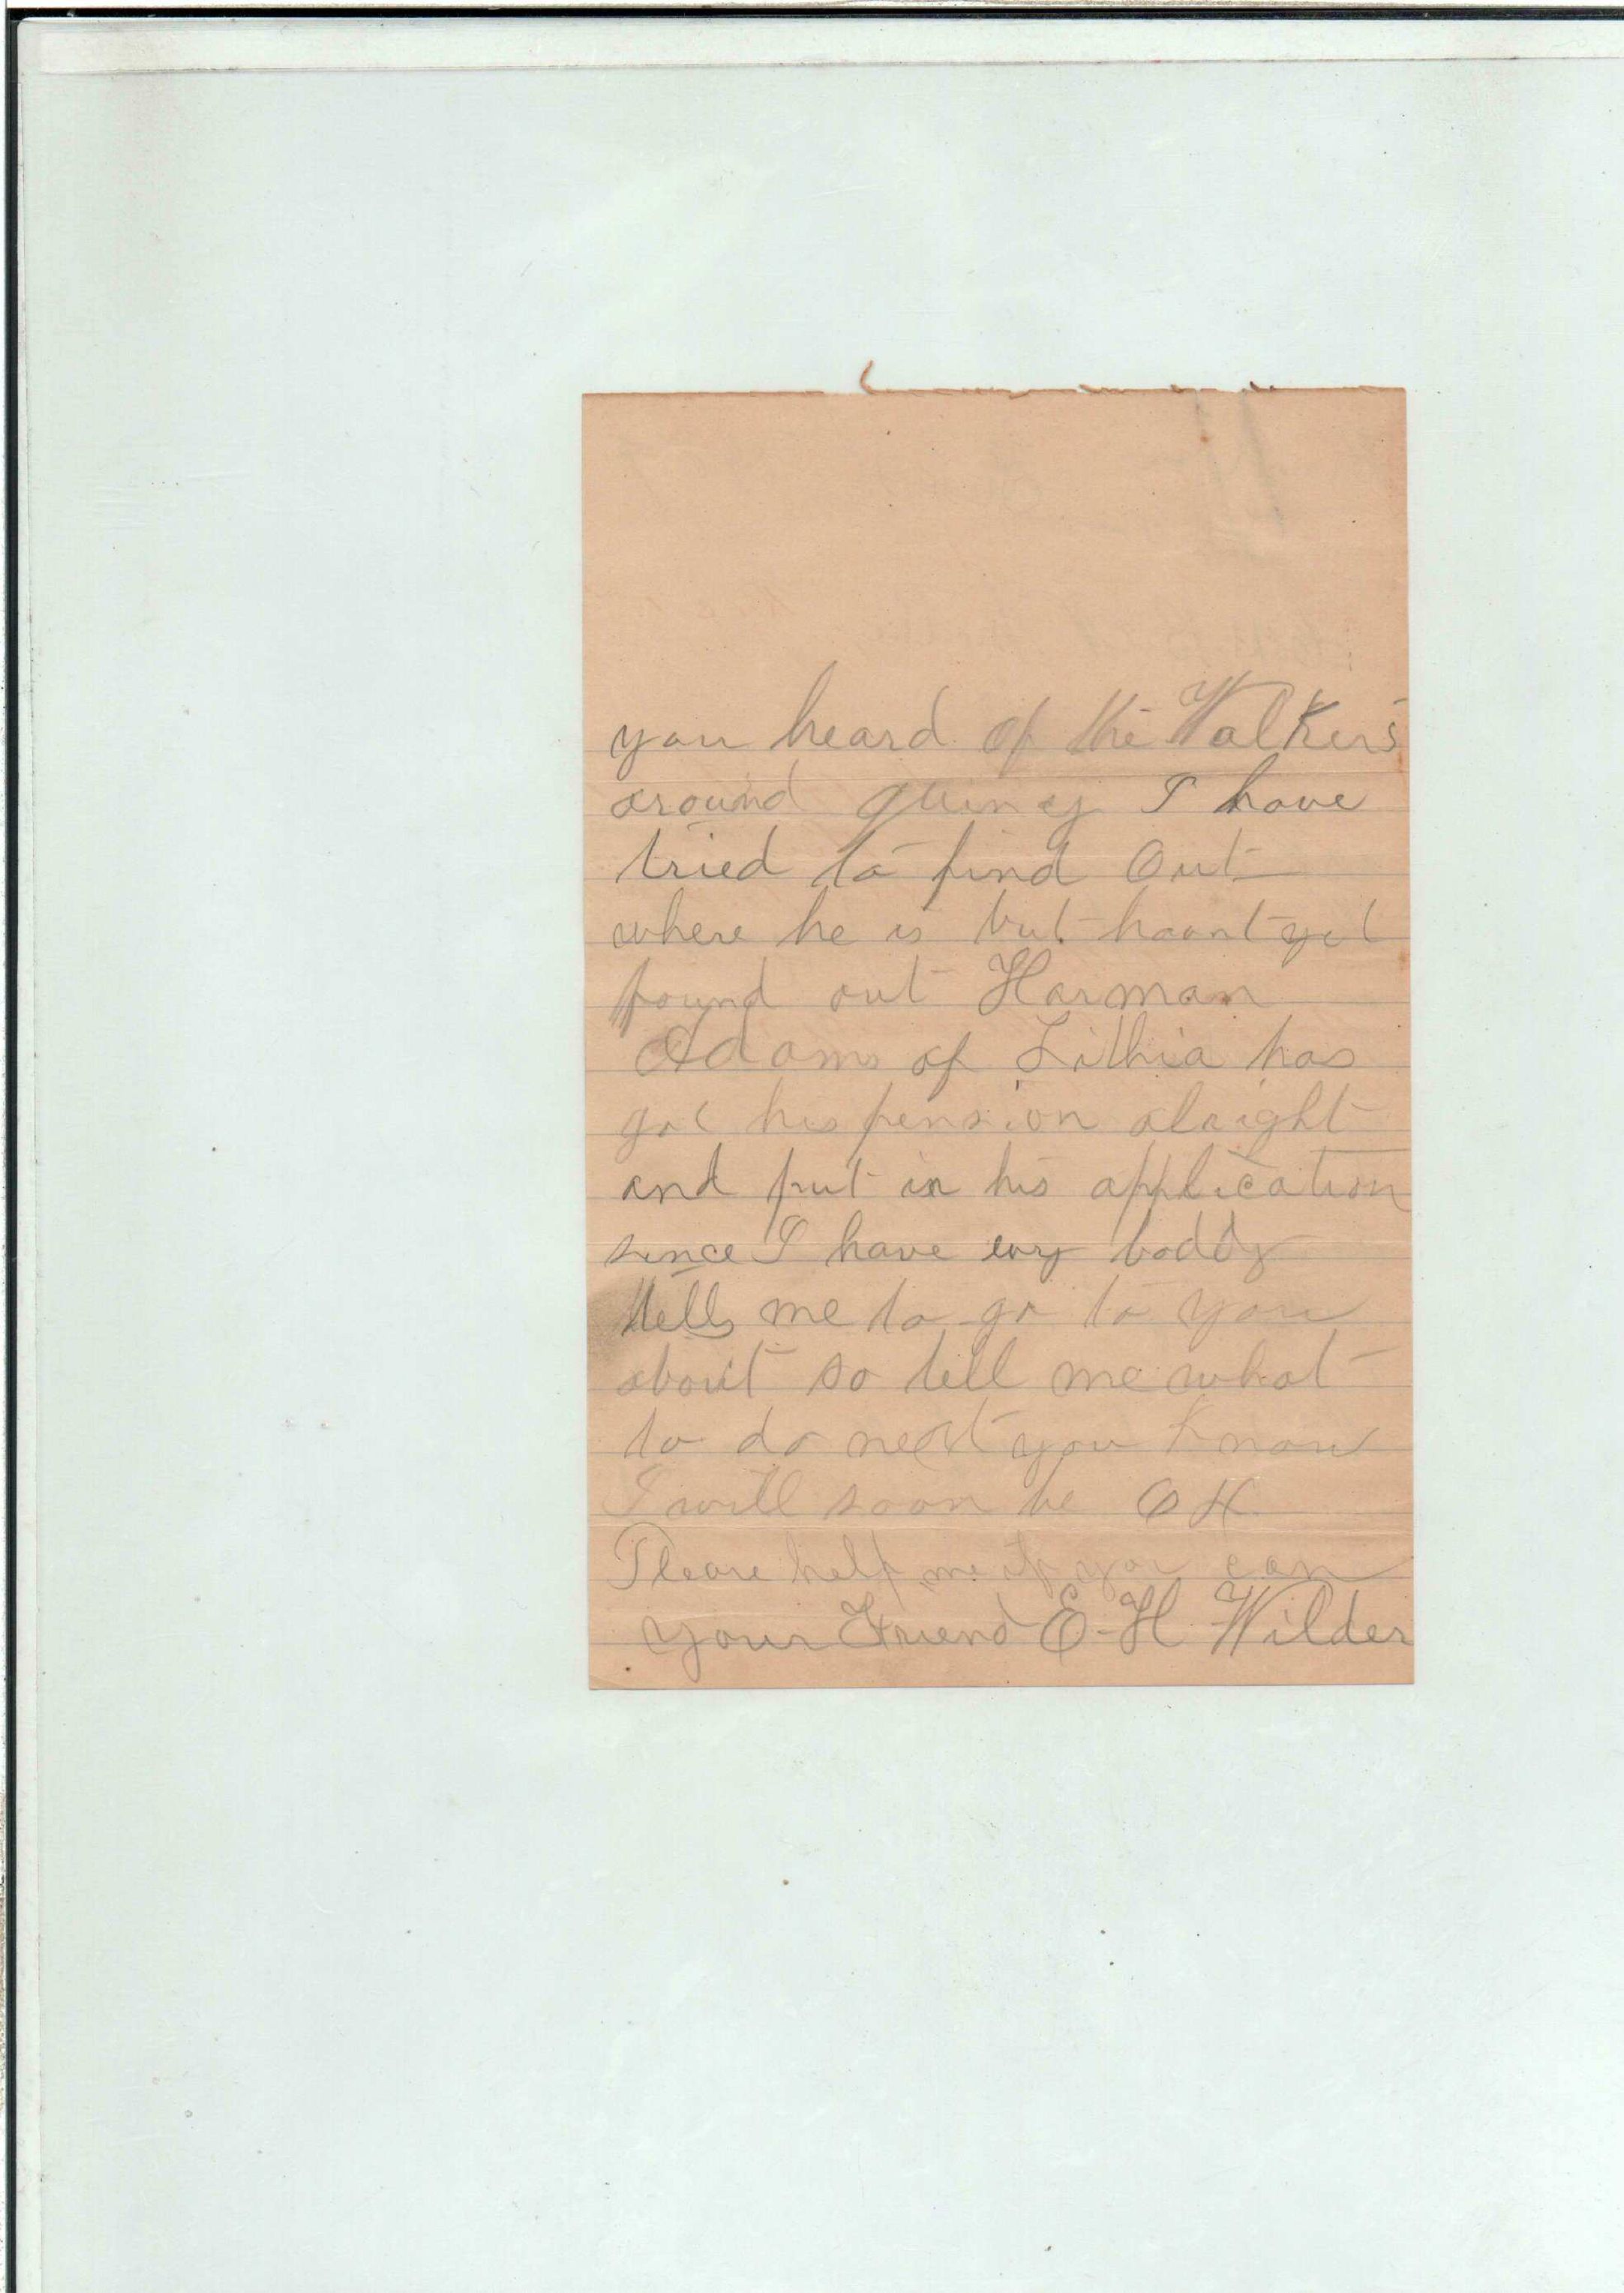 you heard of the Walkers
around quincy I have
tried to find out
where he is but haont yet
found out Harman
Adams of Lithia has
got his pension alright
and put in his application
since I have evry boddy
tells me to go to you
about so tell me what
to do next you know
I will soon be 84
Please help me if you can
your Friend E-H Wilder